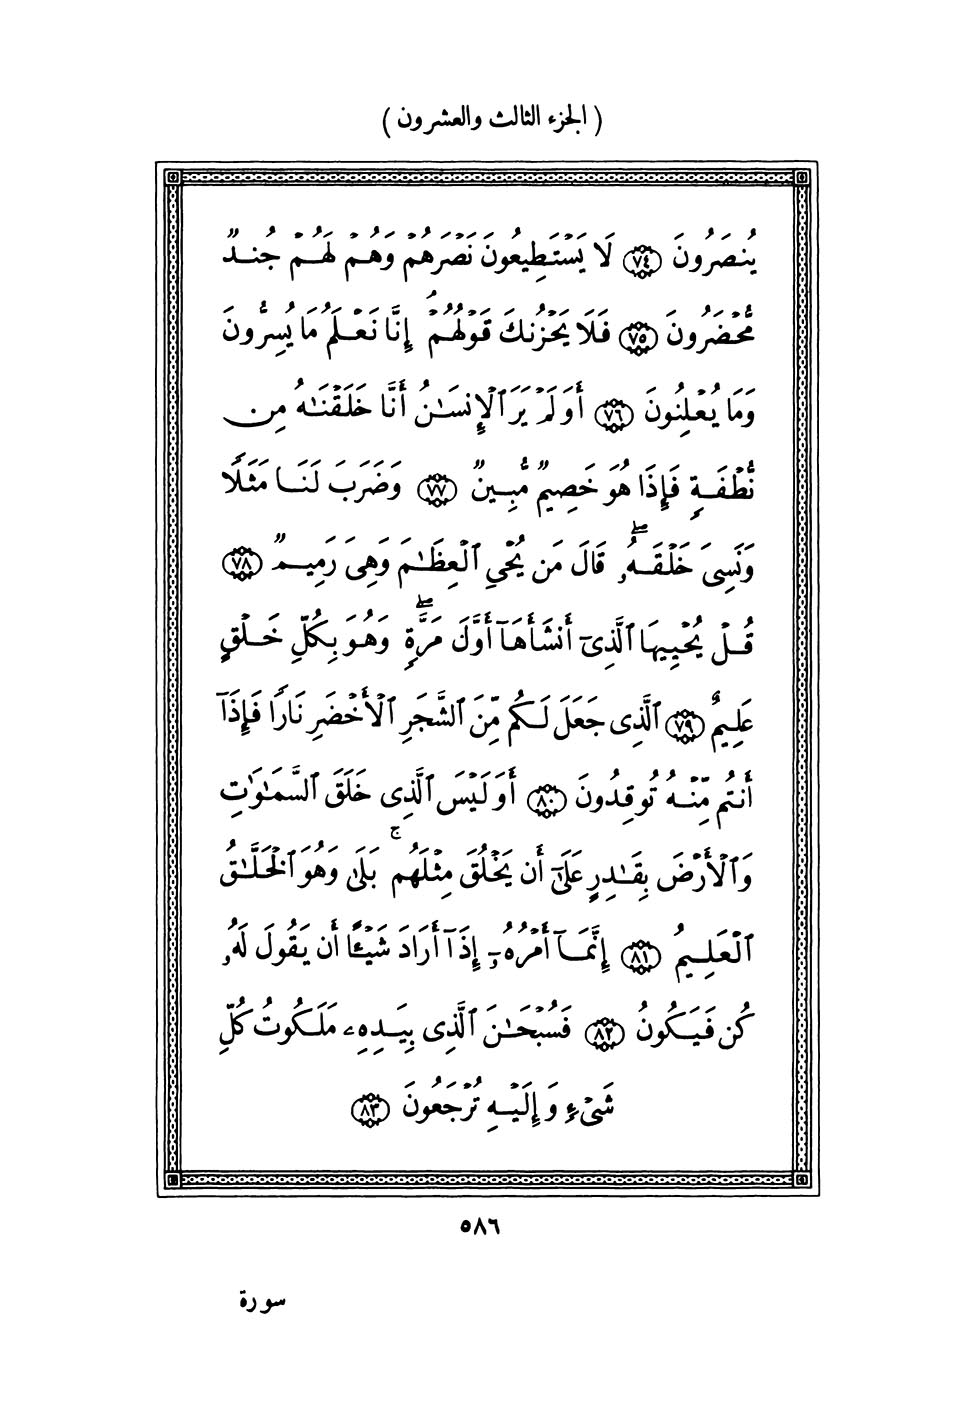 ( الجزء الثالث والعشرون )
يُنصَرُونَ ﴿٧٤﴾ لَا يَسْتَطِيعُونَ نَصْرَهُمْ وَهُمْ لَهُمْ جُندٌ
مُّحْضَرُونَ ﴿٧٥﴾ فَلَا يَحْزُنكَ قَوْلُهُمْ ۘ إِنَّا نَعْلَمُ مَا يُسِرُّونَ
وَمَا يُعْلِنُونَ ﴿٧٦﴾ أَوَلَمْ يَرَ ٱلْإِنسَـٰنُ أَنَّا خَلَقْنَـٰهُ مِن
نُّطْفَةٍ فَإِذَا هُوَ خَصِيمٌ مُّبِينٌ ﴿٧٧﴾ وَضَرَبَ لَنَا مَثَلًا
وَنَسِىَ خَلْقَهُۥ ۖ قَالَ مَن يُحْىِ ٱلْعِظَـٰمَ وَهِىَ رَمِيمٌ ﴿٧٨﴾
قُلْ يُحْيِيهَا ٱلَّذِىٓ أَنشَأَهَآ أَوَّلَ مَرَّةٍ ۖ وَهُوَ بِكُلِّ خَلْقٍ
عَلِيمٌ ﴿٧٩﴾ ٱلَّذِى جَعَلَ لَكُم مِّنَ ٱلشَّجَرِ ٱلْأَخْضَرِ نَارًا فَإِذَآ
أَنتُم مِّنْهُ تُوقِدُونَ ﴿٨٠﴾ أَوَلَيْسَ ٱلَّذِى خَلَقَ ٱلسَّمَـٰوَٰتِ
وَٱلْأَرْضَ بِقَـٰدِرٍ عَلَىٰٓ أَن يَخْلُقَ مِثْلَهُم ۚ بَلَىٰ وَهُوَ ٱلْخَلَّـٰقُ
ٱلْعَلِيمُ ﴿٨١﴾ إِنَّمَآ أَمْرُهُۥٓ إِذَآ أَرَادَ شَيْـًٔا أَن يَقُولَ لَهُۥ
كُن فَيَكُونُ ﴿٨٢﴾ فَسُبْحَـٰنَ ٱلَّذِى بِيَدِهِۦ مَلَكُوتُ كُلِّ
شَىْءٍ وَإِلَيْهِ تُرْجَعُونَ ﴿٨٣﴾
٥٨٦
سورة